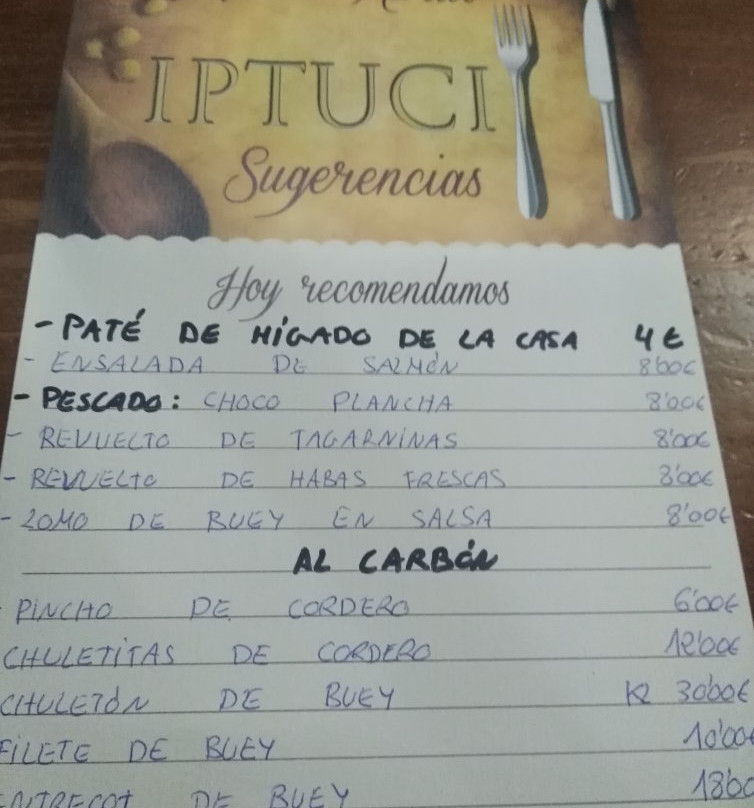 IPTUCI
Sugerencias
Hoy recomendamos
- PATÉ DE HÍGADO DE LA CASA 4 €
- ENSALADA DE SALMÓN 8'00€
- PESCADO: CHOCO PLANCHA 8'00€
- REVUELTO DE TAGARNINAS 8'00€
- REVUELTO DE HABAS FRESCAS 8'00€
- LOMO DE BUEY EN SALSA 8'00€
AL CARBÓN
PINCHO DE CORDERO 6'00€
CHULETITAS DE CORDERO 12'00€
CHULETÓN DE BUEY K 30'00€
FILETE DE BUEY 10'00€
ENTRECOT DE BUEY 18'00